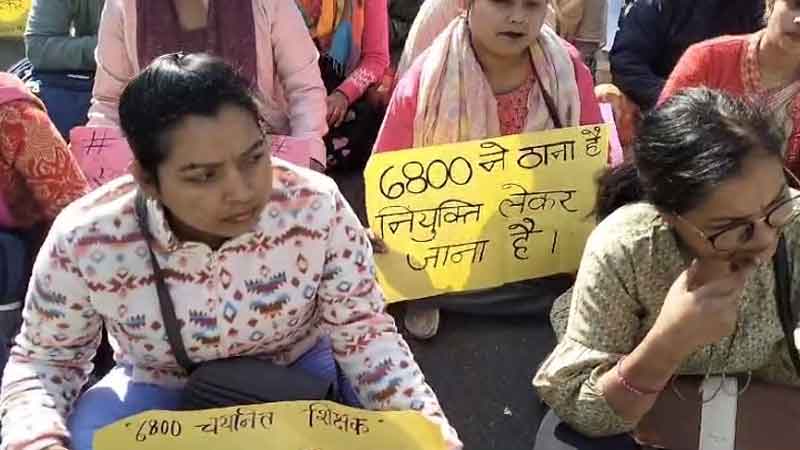 6800 ने ठाना है
नियुक्ति लेकर
जाना है।
"6800 चयनित शिक्षक